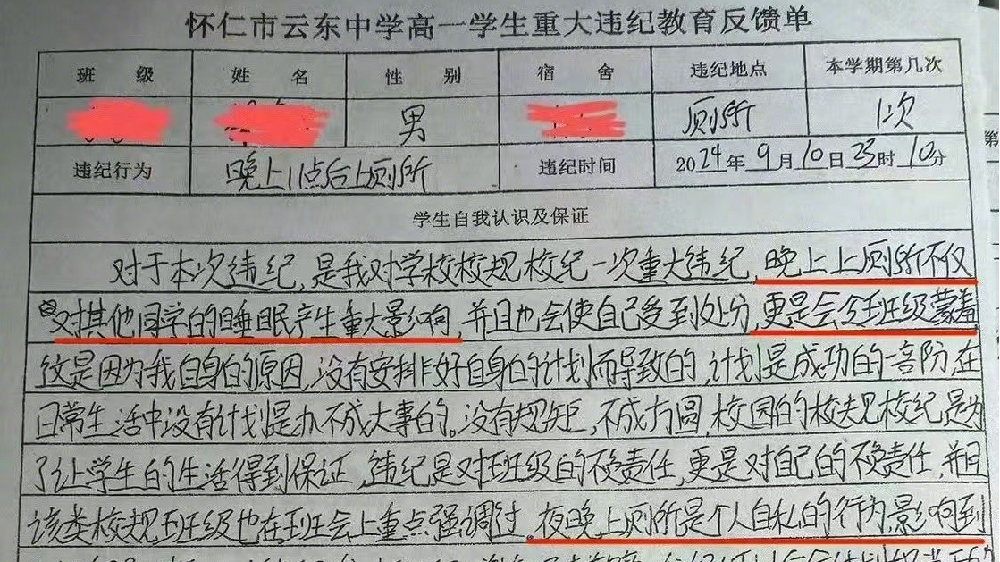 怀仁市云东中学高一学生重大违纪教育反馈单
班 级 姓 名 性 别 宿 舍 违纪地点 本学期第几次
男 厕所 1次
违纪行为 晚上11点后上厕所 违纪时间 2024年9月10日23时10分
第
学生自我认识及保证
对于本次违纪,是我对学校校规校纪一次重大违纪,晚上上厕所不仅
对其他同学的睡眠产生重大影响,并且也会使自己受到处分,更是会令班级蒙羞
这是因为我自身的原因,没有安排好自身的计划而导致的,计划是成功的一部分,在
日常生活中没有计划是办不成大事的。没有规矩,不成方圆,校园的校规校纪是为
了让学生的生活得到保证,违纪是对班级的不负责任,更是对自己的不负责任,并且
该类校规班级也在班会上重点强调过,夜晚上厕所是个人自私的行为影响到